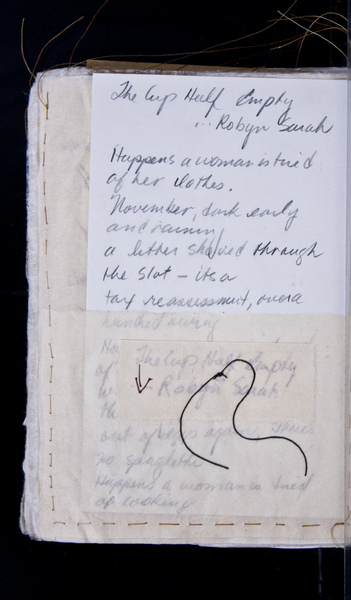 The Cup Half Empty
... Robyn Sarah
Happens a woman is tired
of her clothes.
November, dark early
and raining
a letter shoved through
the slot – its a
tax reassessment, over a
hundred owing
No
of
The Cup Half Empty
- Robyn Sarah
th
out of eggs again, theres
no spaghetti
Happens a woman is tired
of cooking